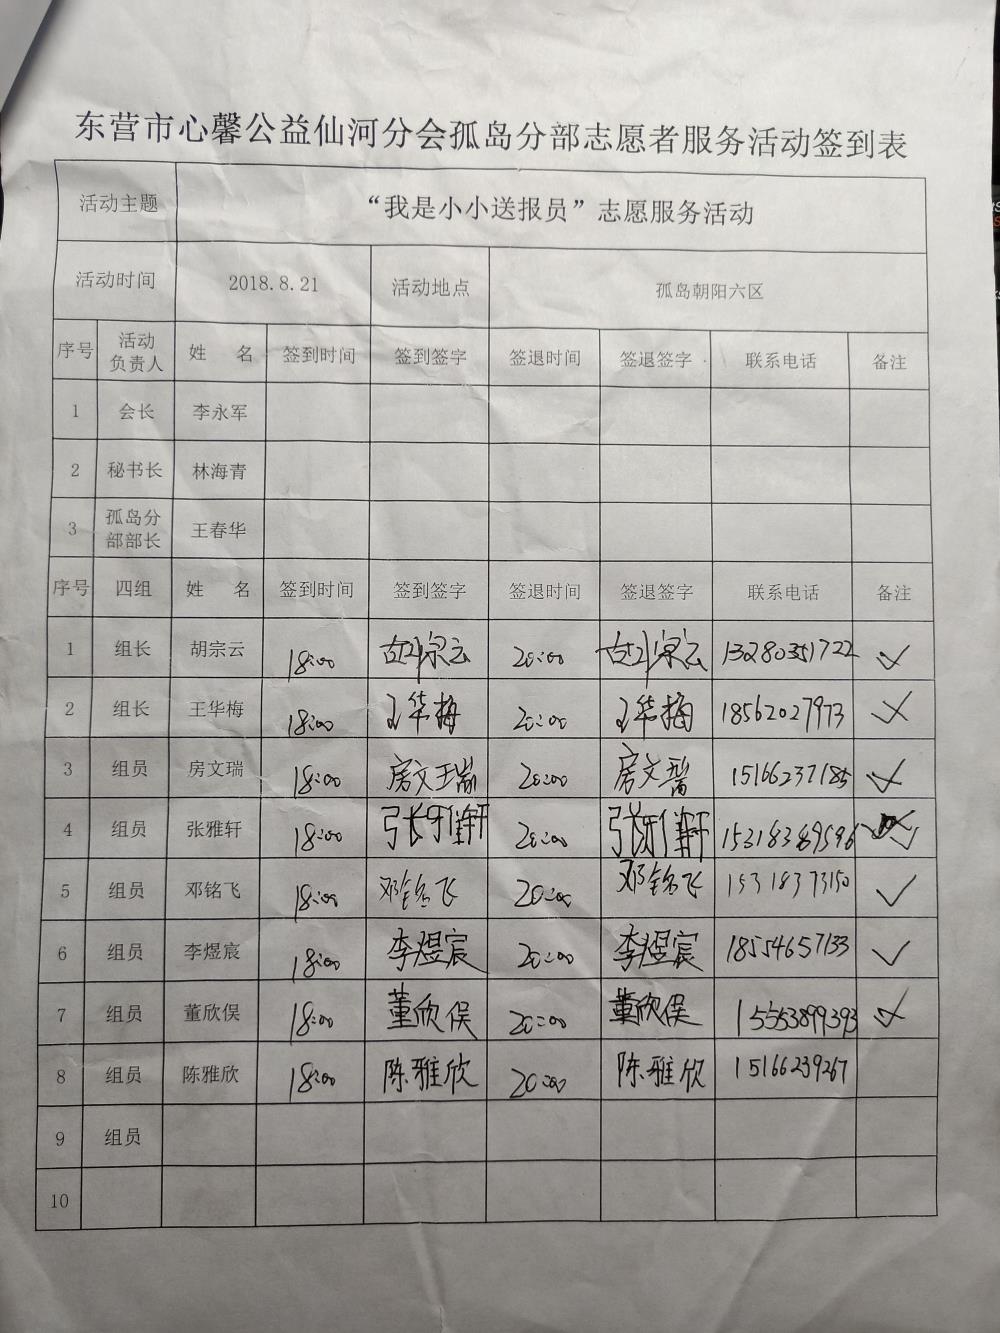 东营市心馨公益仙河分会孤岛分部志愿者服务活动签到表
活动主题 “我是小小送报员”志愿服务活动
活动时间 2018.8.21 活动地点 孤岛朝阳六区
序号 活动负责人 姓 名 签到时间 签到签字 签退时间 签退签字 联系电话 备注
1 会长 李永军
2 秘书长 林海青
3 孤岛分部部长 王春华
序号 四组 姓 名 签到时间 签到签字 签退时间 签退签字 联系电话 备注
1 组长 胡宗云 18:00 胡宗云 20:00 胡宗云 13280351722 ✓
2 组长 王华梅 18:00 王华梅 20:00 王华梅 18562027973 ✓
3 组员 房文瑞 18:00 房文瑞 20:00 房文 15166237185 ✓
4 组员 张雅轩 18:00 张雅轩 20:00 张雅轩 ✓
5 组员 邓铭飞 18:00 邓铭飞 20:00 邓铭飞 15318373150 ✓
6 组员 李煜宸 18:00 李煜宸 20:00 李煜宸 18554657133 ✓
7 组员 董欣俣 18:00 董欣俣 20:00 董欣俣 15553899393 ✓
8 组员 陈雅欣 18:00 陈雅欣 20:00 陈雅欣 15166239267
9 组员
10